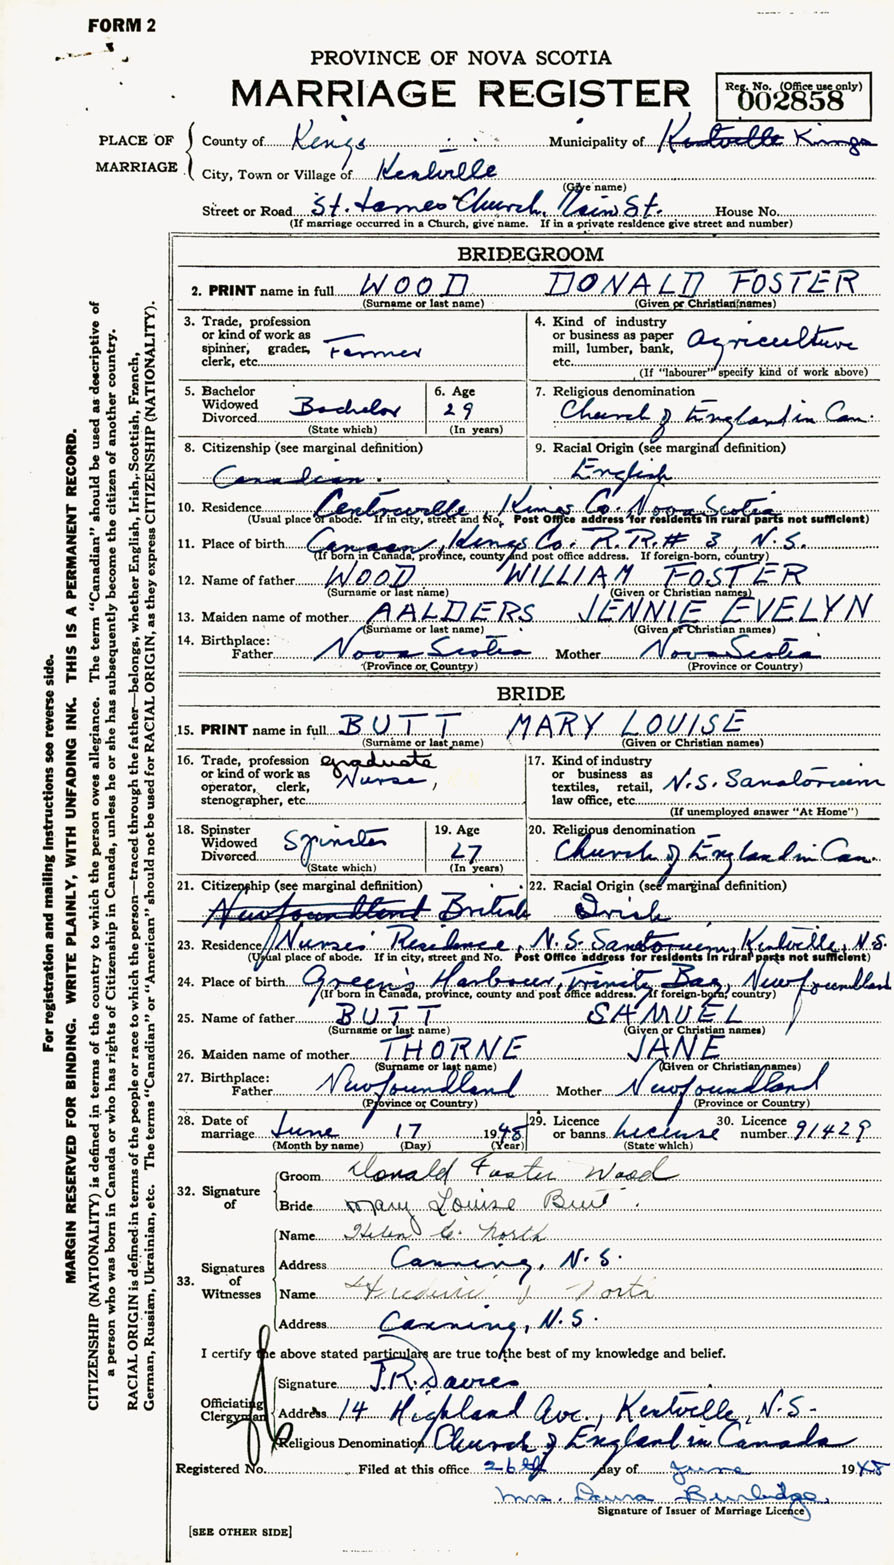 FORM 2
PROVINCE OF NOVA SCOTIA
MARRIAGE REGISTER
Reg. No. (Office use only)
002858
PLACE OF MARRIAGE
County of Kings Municipality of Kentville Kings
City, Town or Village of Kentville
(Give name)
Street or Road St. James Church, Main St. House No.
(If marriage occurred in a Church, give name. If in a private residence give street and number)
BRIDEGROOM
2. PRINT name in full WOOD DONALD FOSTER
(Surname or last name) (Given or Christian names)
3. Trade, profession or kind of work as spinner, grader, clerk, etc. Farmer
4. Kind of industry or business as paper mill, lumber, bank, etc. Agriculture
(If "labourer" specify kind of work above)
5. Bachelor Widowed Divorced Bachelor
(State which)
6. Age 29
(In years)
7. Religious denomination
Church of England in Can.
8. Citizenship (see marginal definition)
Canadian.
9. Racial Origin (see marginal definition)
English
10. Residence Centreville, Kings Co. Nova Scotia
(Usual place of abode. If in city, street and No. Post Office address for residents in rural parts not sufficient)
11. Place of birth Canaan, Kings Co. R.R.# 3, N.S.
(If born in Canada, province, county and post office address. If foreign-born, country)
12. Name of father WOOD WILLIAM FOSTER
(Surname or last name) (Given or Christian names)
13. Maiden name of mother AALDERS JENNIE EVELYN
(Surname or last name) (Given or Christian names)
14. Birthplace:
Father Nova Scotia Mother Nova Scotia
(Province or Country) (Province or Country)
BRIDE
15. PRINT name in full BUTT MARY LOUISE
(Surname or last name) (Given or Christian names)
16. Trade, profession or kind of work as operator, clerk, stenographer, etc. graduate Nurse,
17. Kind of industry or business as textiles, retail, law office, etc. N.S. Sanatorium
(If unemployed answer "At Home")
18. Spinster Widowed Divorced Spinster
(State which)
19. Age 27
(In years)
20. Religious denomination
Church of England in Can.
21. Citizenship (see marginal definition)
Newfoundland British
22. Racial Origin (see marginal definition)
Irish
23. Residence Nurses' Residence, N.S. Sanatorium, Kentville, N.S.
(Usual place of abode. If in city, street and No. Post Office address for residents in rural parts not sufficient)
24. Place of birth Green's Harbour, Trinity Bay, Newfoundland
(If born in Canada, province, county and post office address. If foreign-born, country)
25. Name of father BUTT SAMUEL
(Surname or last name) (Given or Christian names)
26. Maiden name of mother THORNE JANE
(Surname or last name) (Given or Christian names)
27. Birthplace:
Father Newfoundland Mother Newfoundland
(Province or Country) (Province or Country)
28. Date of marriage June 17 1948
(Month by name) (Day) (Year)
29. Licence or banns License
(State which)
30. Licence number 91429
32. Signature of
Groom Donald Foster Wood
Bride Mary Louise Butt.
33. Signatures of Witnesses
Name Helen C. North
Address Canning, N.S.
Name Frederic J North
Address Canning, N.S.
I certify the above stated particulars are true to the best of my knowledge and belief.
Officiating Clergyman
Signature J.R. Davies
Address 14 Highland Ave., Kentville, N.S.
Religious Denomination Church of England in Canada
Registered No. Filed at this office 26th day of June 1948
Mrs.
Signature of Issuer of Marriage Licence
[SEE OTHER SIDE]
For registration and mailing instructions see reverse side.
MARGIN RESERVED FOR BINDING. WRITE PLAINLY, WITH UNFADING INK. THIS IS A PERMANENT RECORD.
CITIZENSHIP (NATIONALITY) is defined in terms of the country to which the person owes allegiance. The term "Canadian" should be used as descriptive of
a person who was born in Canada or who has rights of Citizenship in Canada, unless he or she has subsequently become the citizen of another country.
RACIAL ORIGIN is defined in terms of the people or race to which the person—traced through the father—belongs, whether English, Irish, Scottish, French,
German, Russian, Ukrainian, etc. The terms "Canadian" or "American" should not be used for RACIAL ORIGIN, as they express CITIZENSHIP (NATIONALITY).